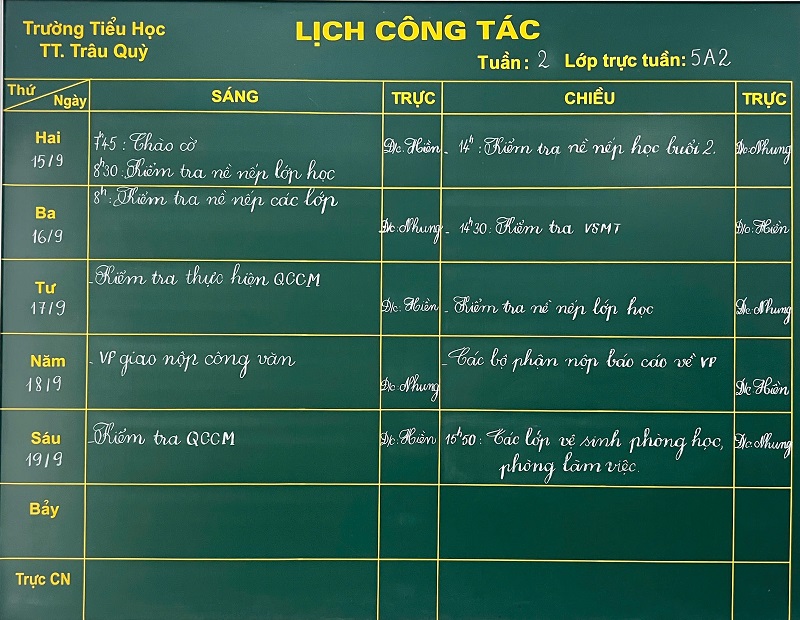 Trường Tiểu Học
TT. Trâu Quỳ
LỊCH CÔNG TÁC
Tuần: 2 Lớp trực tuần: 5A2
Thứ
Ngày
SÁNG
TRỰC
CHIỀU
TRỰC
Hai
15/9
7h45: Chào cờ
8h30: Kiểm tra nề nếp lớp học
Đ/c: Hiền
- 14h: Kiểm tra nề nếp học buổi 2.
Đ/c: Nhung
Ba
16/9
8h: Kiểm tra nề nếp các lớp
Đ/c: Nhung
- 14h30: Kiểm tra VSMT
Đ/c: Hiền
Tư
17/9
- Kiểm tra thực hiện QCCM
Đ/c: Hiền
- Kiểm tra nề nếp lớp học
Đ/c: Nhung
Năm
18/9
- VP giao nộp công văn
Đ/c: Nhung
- Các bộ phận nộp báo cáo về VP
Đ/c: Hiền
Sáu
19/9
- Kiểm tra QCCM
Đ/c: Hiền
15h50: Các lớp vệ sinh phòng học,
phòng làm việc.
Đ/c: Nhung
Bảy
Trực CN